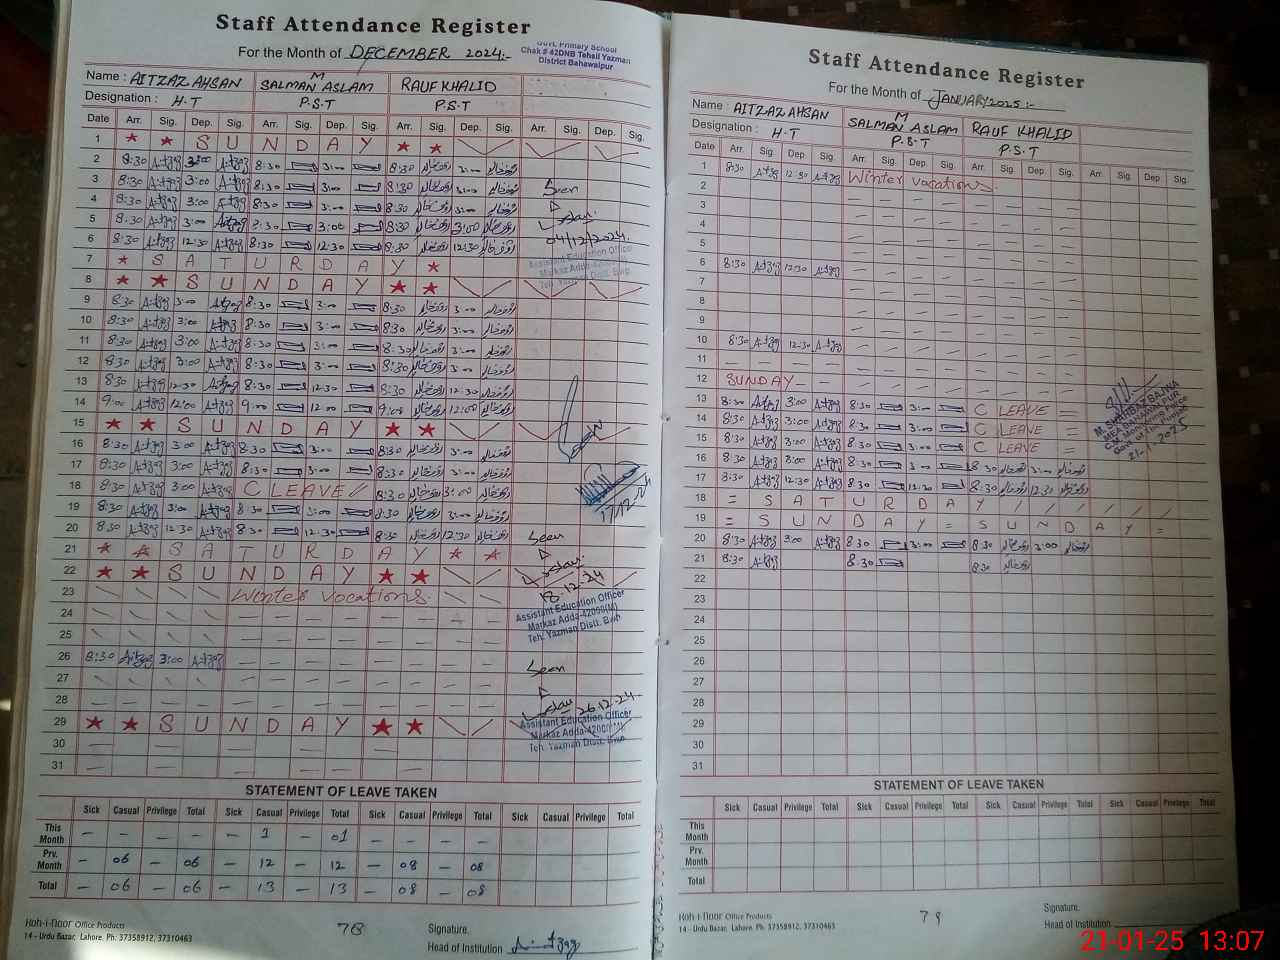 Staff Attendance Register
For the Month of DECEMBER 2024:-
Govt. Primary School
Chak # 42DNB Tehsil Yazman
District Bahawalpur
Name : AITZAZ AHSAN M SALMAN ASLAM RAUF KHALID
Designation : H.T P.S.T P.S.T
Date Arr. Sig. Dep. Sig. Arr. Sig. Dep. Sig. Arr. Sig. Dep. Sig. Arr. Sig. Dep. Sig.
1 ★ ★ S U N D A Y ★ ★
2 8:30 Aitzaz 3:00 Aitzaz 8:30 3:00 8:30 رؤف خالد 3:00 رؤف خالد
3 8:30 Aitzaz 3:00 Aitzaz 8:30 3:00 8:30 رؤف خالد 3:00 رؤف خالد
4 8:30 Aitzaz 3:00 Aitzaz 8:30 3:00 8:30 رؤف خالد 3:00 رؤف خالد
5 8:30 Aitzaz 3:00 Aitzaz 8:30 3:00 8:30 رؤف خالد 3:00 رؤف خالد
6 8:30 Aitzaz 12:30 Aitzaz 8:30 12:30 8:30 رؤف خالد 12:30 رؤف خالد
Seen
04/12/2024
Assistant Education Officer
Markaz Adda-42000(M)
Teh. Yazman Distt. Bwp
7 ★ S A T U R D A Y ★
8 ★ ★ S U N D A Y ★ ★
9 8:30 Aitzaz 3:00 Aitzaz 8:30 3:00 8:30 رؤف خالد 3:00 رؤف خالد
10 8:30 Aitzaz 3:00 Aitzaz 8:30 3:00 8:30 رؤف خالد 3:00 رؤف خالد
11 8:30 Aitzaz 3:00 Aitzaz 8:30 3:00 8:30 رؤف خالد 3:00 رؤف خالد
12 8:30 Aitzaz 3:00 Aitzaz 8:30 3:00 8:30 رؤف خالد 3:00 رؤف خالد
13 8:30 Aitzaz 12:30 Aitzaz 8:30 12:30 8:30 رؤف خالد 12:30 رؤف خالد
14 9:00 Aitzaz 12:00 Aitzaz 9:00 12:00 9:00 رؤف خالد 12:00 رؤف خالد
15 ★ ★ S U N D A Y ★ ★
16 8:30 Aitzaz 3:00 Aitzaz 8:30 3:00 8:30 رؤف خالد 3:00 رؤف خالد
17 8:30 Aitzaz 3:00 Aitzaz 8:30 3:00 8:30 رؤف خالد 3:00 رؤف خالد
18 8:30 Aitzaz 3:00 Aitzaz C LEAVE // 8:30 رؤف خالد 3:00 رؤف خالد
17/12/24
19 8:30 Aitzaz 3:00 Aitzaz 8:30 3:00 8:30 رؤف خالد 3:00 رؤف خالد
20 8:30 Aitzaz 12:30 Aitzaz 8:30 12:30 8:30 رؤف خالد 12:30 رؤف خالد
21 ★ ★ S A T U R D A Y ★ ★
22 ★ ★ S U N D A Y ★ ★
Seen
18.12.24
Assistant Education Officer
Markaz Adda-42000(M)
Teh. Yazman Distt. Bwp
23 Winter vocations.
24
25
26 8:30 Aitzaz 3:00 Aitzaz
27
28
Seen
26.12.24
Assistant Education Officer
Markaz Adda-42000(M)
Teh. Yazman Distt. Bwp
29 ★ ★ S U N D A Y ★ ★
30
31
STATEMENT OF LEAVE TAKEN
Sick Casual Privilege Total Sick Casual Privilege Total Sick Casual Privilege Total Sick Casual Privilege Total
This Month - - - - - 1 - 01 - - - -
Prv. Month - 06 - 06 - 12 - 12 - 08 - 08
Total - 06 - 06 - 13 - 13 - 08 - 08
Koh-i-noor Office Products
14 - Urdu Bazar, Lahore. Ph: 37358912, 37310463
78
Signature.
Head of Institution Aitzaz
Staff Attendance Register
For the Month of JANUARY 2025:-
Name : AITZAZ AHSAN M SALMAN ASLAM RAUF KHALID
Designation : H.T P.S.T P.S.T
Date Arr. Sig. Dep. Sig. Arr. Sig. Dep. Sig. Arr. Sig. Dep. Sig. Arr. Sig. Dep. Sig.
1 8:30 Aitzaz 12:30 Aitzaz Winter vocations.
2
3
4
5
6 8:30 Aitzaz 12:30 Aitzaz
7
8
9
10 8:30 Aitzaz 12:30 Aitzaz
11
12 SUNDAY -
13 8:30 Aitzaz 3:00 Aitzaz 8:30 3:00 C LEAVE =
14 8:30 Aitzaz 3:00 Aitzaz 8:30 3:00 C LEAVE =
15 8:30 Aitzaz 3:00 Aitzaz 8:30 3:00 C LEAVE =
21-1-2025
16 8:30 Aitzaz 3:00 Aitzaz 8:30 3:00 8:30 رؤف خالد 3:00 رؤف خالد
17 8:30 Aitzaz 12:30 Aitzaz 8:30 12:30 8:30 رؤف خالد 12:30 رؤف خالد
18 = S A T U R D A Y / / / / /
19 = S U N D A Y = S U N D A Y =
20 8:30 Aitzaz 3:00 Aitzaz 8:30 3:00 8:30 رؤف خالد 3:00 رؤف خالد
21 8:30 Aitzaz 8:30 8:30 رؤف خالد
22
23
24
25
26
27
28
29
30
31
STATEMENT OF LEAVE TAKEN
Sick Casual Privilege Total Sick Casual Privilege Total Sick Casual Privilege Total Sick Casual Privilege Total
This Month
Prv. Month
Total
Koh-i-noor Office Products
14 - Urdu Bazar, Lahore. Ph: 37358912, 37310463
79
Signature.
Head of Institution
21-01-25 13:07